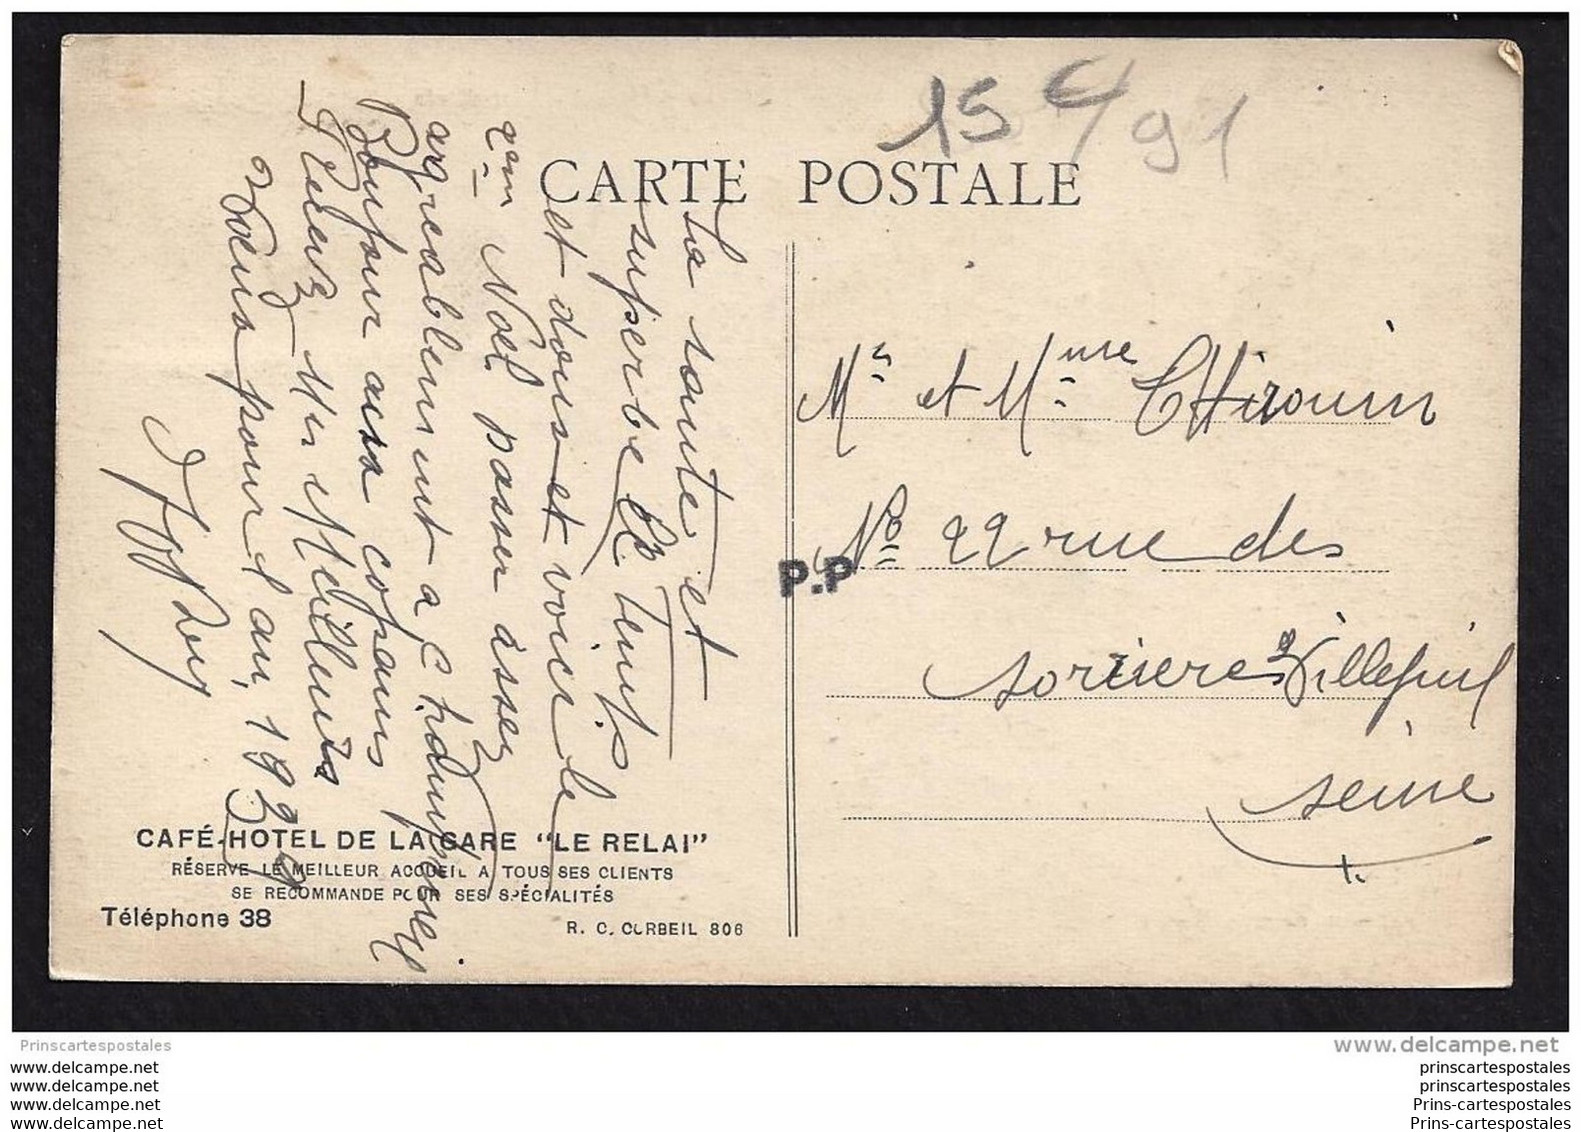 15 € / 91
CARTE POSTALE
La santé et
superbe le temps
et doux et voici le
2em Noël passer assez
agréablement a Champcueil
Bonjour aux copains
Recevez Mes Meilleurs
Vœux pour l'an, 1939
Mr et Mme THirouin
No 22 rue des
sorriere Villejuif
seine
P.P
CAFÉ-HOTEL DE LA GARE "LE RELAI"
RÉSERVE LE MEILLEUR ACCUEIL A TOUS SES CLIENTS
SE RECOMMANDE POUR SES SPÉCIALITÉS
Téléphone 38
R. C. CORBEIL 806
Prinscartespostales
www.delcampe.net
www.delcampe.com
www.delcampe.com
www.delcampe.com
www.delcampe.com
prinscartespostales
prinscartespostales
Prins-cartespostales
Prins-cartespostales